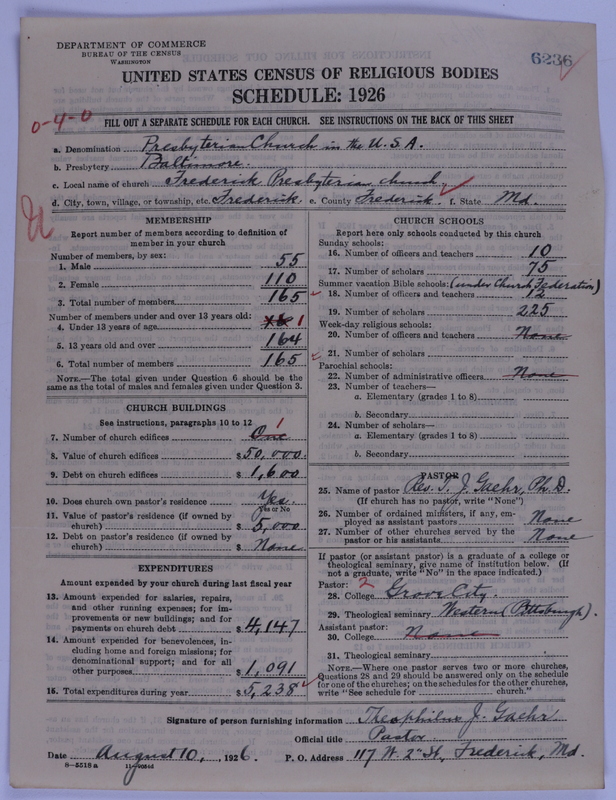 DEPARTMENT OF COMMERCE
BUREAU OF THE CENSUS
WASHINGTON
6236
UNITED STATES CENSUS OF RELIGIOUS BODIES
SCHEDULE: 1926
0-4-0
FILL OUT A SEPARATE SCHEDULE FOR EACH CHURCH. SEE INSTRUCTIONS ON THE BACK OF THIS SHEET
a. Denomination Presbyterian Church in the U.S.A.
b. Presbytery Baltimore.
c. Local name of church Frederick Presbyterian church
d. City, town, village, or township, etc. Frederick. e. County Frederick. f. State Md.
MEMBERSHIP
Report number of members according to definition of
member in your church
Number of members, by sex:
1. Male 55
2. Female 110
3. Total number of members 165
Number of members under and over 13 years old:
4. Under 13 years of age 1
5. 13 years old and over 164
6. Total number of members 165
NOTE.—The total given under Question 6 should be the
same as the total of males and females given under Question 3.
CHURCH BUILDINGS
See instructions, paragraphs 10 to 12
7. Number of church edifices One 1
8. Value of church edifices $50,000.
9. Debt on church edifices $1,600
10. Does church own pastor's residence Yes.
Yes or No
11. Value of pastor's residence (if owned by
church) $5,000
12. Debt on pastor's residence (if owned by
church) $None
EXPENDITURES
Amount expended by your church during last fiscal year
13. Amount expended for salaries, repairs,
and other running expenses; for im-
provements or new buildings; and for
payments on church debt $4,147
14. Amount expended for benevolences, in-
cluding home and foreign missions; for
denominational support; and for all
other purposes $1,091
15. Total expenditures during year $5,238
CHURCH SCHOOLS
Report here only schools conducted by this church
Sunday schools:
16. Number of officers and teachers 10
17. Number of scholars 75
Summer vacation Bible schools: (under Church Federation)
18. Number of officers and teachers 12
19. Number of scholars 225
Week-day religious schools:
20. Number of officers and teachers None
21. Number of scholars
Parochial schools:
22. Number of administrative officers None
23. Number of teachers—
a. Elementary (grades 1 to 8)
b. Secondary
24. Number of scholars—
a. Elementary (grades 1 to 8)
b. Secondary
PASTOR
25. Name of pastor Rev. T. J. Gaehr, Ph.D.
(If church has no pastor, write "None")
26. Number of ordained ministers, if any, em-
ployed as assistant pastors None
27. Number of other churches served by the
pastor or his assistants None
If pastor (or assistant pastor) is a graduate of a college or
theological seminary, give name of institution below. (If
not a graduate, write "No" in the space indicated.)
Pastor: 2
28. College Grove City.
29. Theological seminary Western (Pittsburgh).
Assistant pastor:
30. College None
31. Theological seminary
NOTE.—Where one pastor serves two or more churches,
Questions 28 and 29 should be answered only on the schedule
for one of the churches; on the schedules for the other churches,
write "See schedule for church."
Signature of person furnishing information Theophilus J. Gaehr
Official title Pastor
Date August 10, 1926. P. O. Address 117 W 2nd St, Frederick, Md.
8-5518a